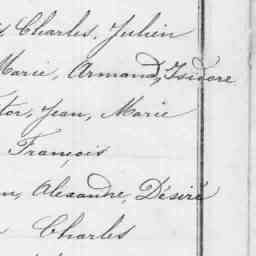 Charles, Julien
Marie, Armand, Isidore
tor, Jean, Marie
François
Alexandre, Désiré
Charles